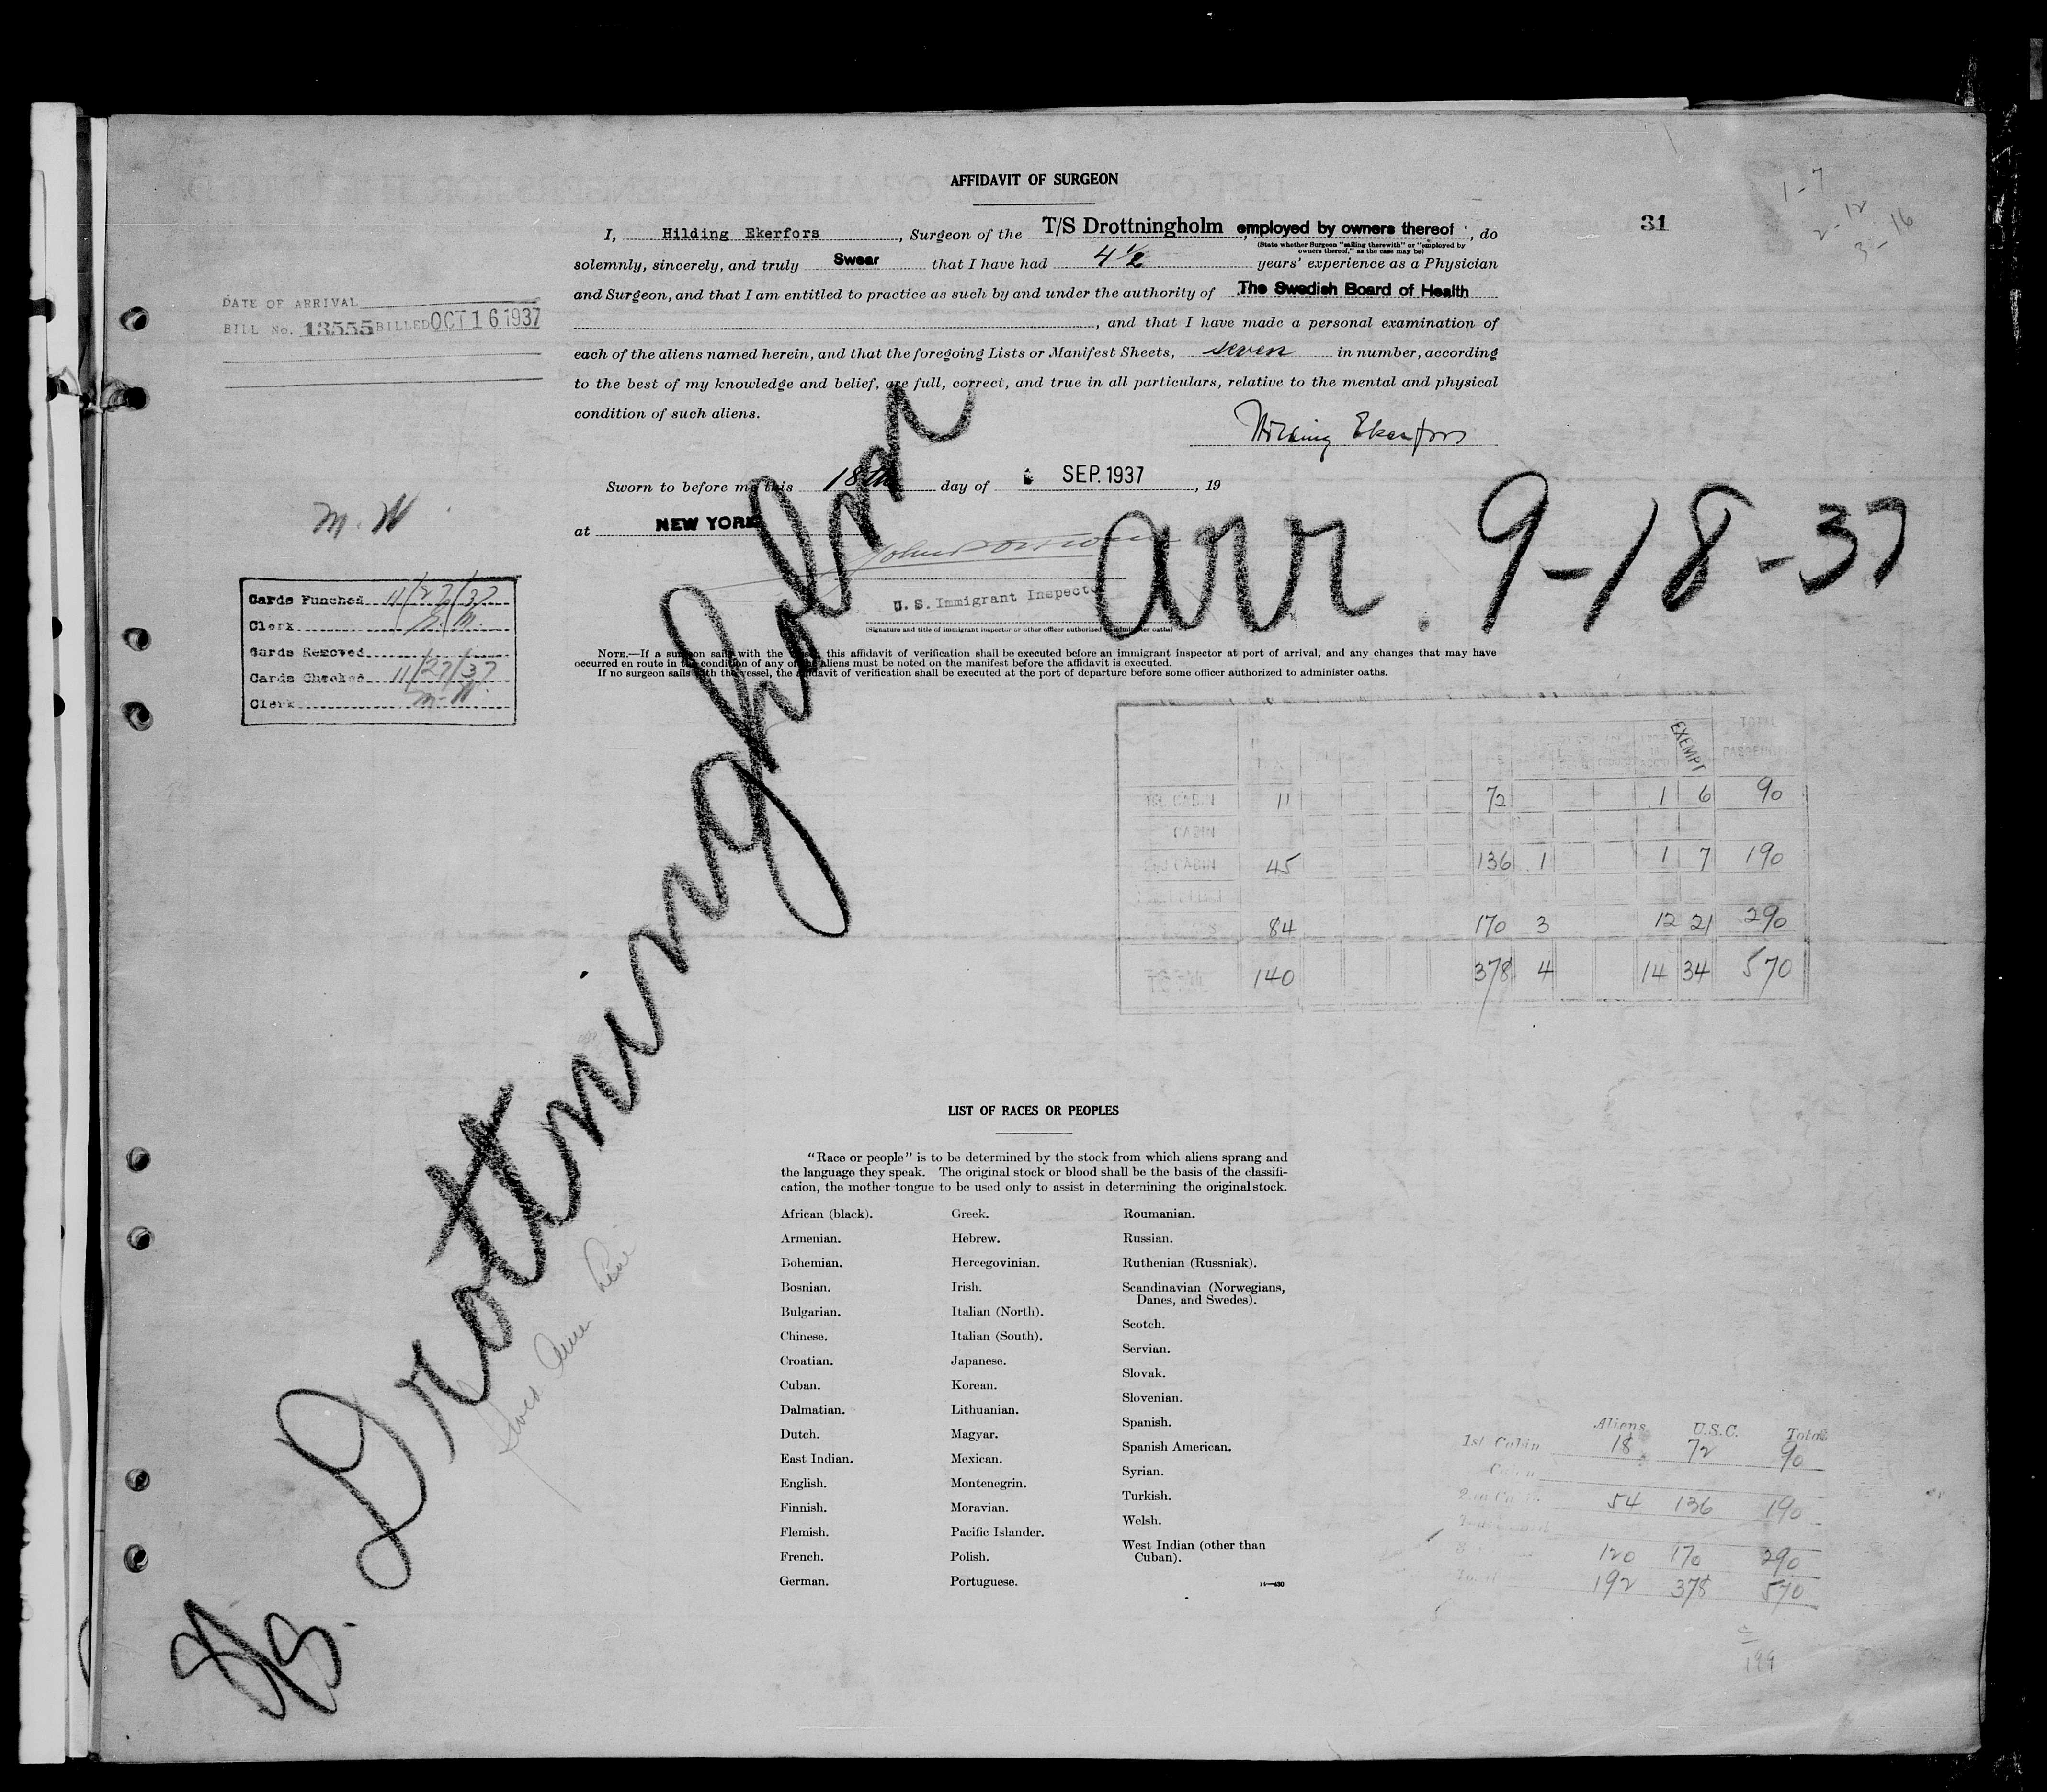 AFFIDAVIT OF SURGEON
31
1-7
2-12
3-16
I, Hilding Ekerfors, Surgeon of the T/S Drottningholm, employed by owners thereof, do
(State whether Surgeon "sailing therewith" or "employed by
owners thereof," as the case may be)
solemnly, sincerely, and truly Swear that I have had 4 1/2 years' experience as a Physician
and Surgeon, and that I am entitled to practice as such by and under the authority of The Swedish Board of Health
, and that I have made a personal examination of
each of the aliens named herein, and that the foregoing Lists or Manifest Sheets, seven in number, according
to the best of my knowledge and belief, are full, correct, and true in all particulars, relative to the mental and physical
condition of such aliens.
Hilding Ekerfors
Sworn to before me this 18th day of SEP. 1937, 19
at NEW YORK
U. S. Immigrant Inspector
(Signature and title of immigrant inspector or other officer authorized to administer oaths)
NOTE.—If a surgeon sails with the vessel, this affidavit of verification shall be executed before an immigrant inspector at port of arrival, and any changes that may have
occurred en route in the condition of any of the aliens must be noted on the manifest before the affidavit is executed.
If no surgeon sails with the vessel, the affidavit of verification shall be executed at the port of departure before some officer authorized to administer oaths.
DATE OF ARRIVAL
BILL No. 13555 BILLED OCT 16 1937
M. W.
Cards Punched 11/27/37
Clerk
Cards Removed
Cards Checked 11/27/37
Clerk M. W.
arr. 9-18-37
SS. Drottningholm
Swed Amer Line
EXEMPT TOTAL
PASSENGERS
1st CABIN 11 72 1 6 90
CABIN
2nd CABIN 45 136 1 1 7 190
84 170 3 12 21 290
TOTAL 140 378 4 14 34 570
LIST OF RACES OR PEOPLES
"Race or people" is to be determined by the stock from which aliens sprang and
the language they speak. The original stock or blood shall be the basis of the classifi-
cation, the mother tongue to be used only to assist in determining the original stock.
African (black).
Armenian.
Bohemian.
Bosnian.
Bulgarian.
Chinese.
Croatian.
Cuban.
Dalmatian.
Dutch.
East Indian.
English.
Finnish.
Flemish.
French.
German.
Greek.
Hebrew.
Hercegovinian.
Irish.
Italian (North).
Italian (South).
Japanese.
Korean.
Lithuanian.
Magyar.
Mexican.
Montenegrin.
Moravian.
Pacific Islander.
Polish.
Portuguese.
Roumanian.
Russian.
Ruthenian (Russniak).
Scandinavian (Norwegians,
Danes, and Swedes).
Scotch.
Servian.
Slovak.
Slovenian.
Spanish.
Spanish American.
Syrian.
Turkish.
Welsh.
West Indian (other than
Cuban).
14—430
Aliens U.S.C. Total
1st Cabin 18 72 90
Cabin
2nd Cabin 54 136 190
120 170 290
Total 192 378 570
199